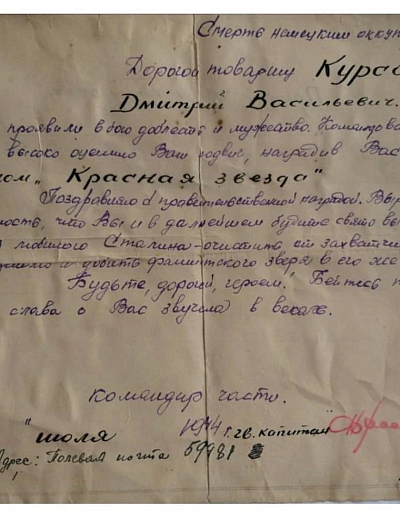 Смерть немецким оккуп
Дорогой товарищ Курс
Дмитрий Васильевич.
проявили в бою доблесть и мужество. Командова
высоко оценило Ваш подвиг, наградив Вас
ом „Красная звезда"
Поздравляю с правительственной наградой. Выр
ность, что Вы и в дальнейшем будите свято вы
любимого Сталина – очистить от захватчи
и добить фашистского зверя в его же
Будьте, дорогой, героем. Бейтесь
слава о Вас звучала в веках.
Командир части.
"июля 1944 г. гв. капитан
Адрес: Полевая почта 59981